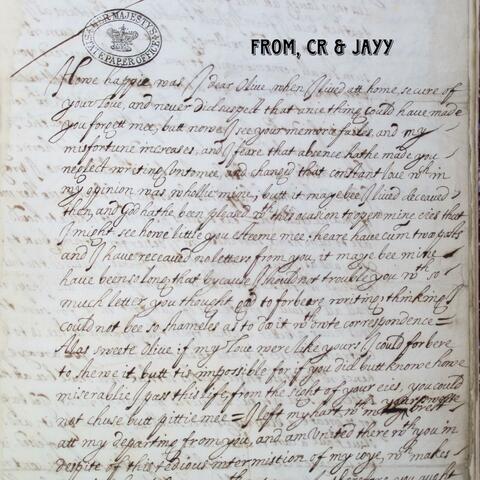 HER MAJESTY'S STATE PAPER OFFICE
FROM, CR & JAYY
Howe happie was I dear Olive when I lived att home, secure of
your Love, and never did suspect that anie thing could have made
you forgett mee, butt nowe I see your memorie failes, and my
misfortune increases, and I feare that absence hathe made you
neglect writing unto mee, and changed that constant love wch in
my opinion was whollie mine, butt it maye bee I lived deceaved
then, and God hathe been pleased wth this ocasion to open mine eies that
I might see howe little you esteeme mee, heare have cum two posts
and I have receaved no letters from you, it maye bee mine
have been so long that because I should not trouble you wth so
much letter you thought good to forbeare writing thinking I
could not bee so shameles as to do it wthoute correspondence =
Alas sweete Olive if my Love were like yours I could forbere
to shewe it, butt tis impossible for if you did butt knowe howe
miserablie I pass this life from the sight of your eies, you could
not chuse butt pittie mee = I left my hart wth
att my departing from you, and am united there wth you in
despite of this tedious intermission of my joye, wch makes